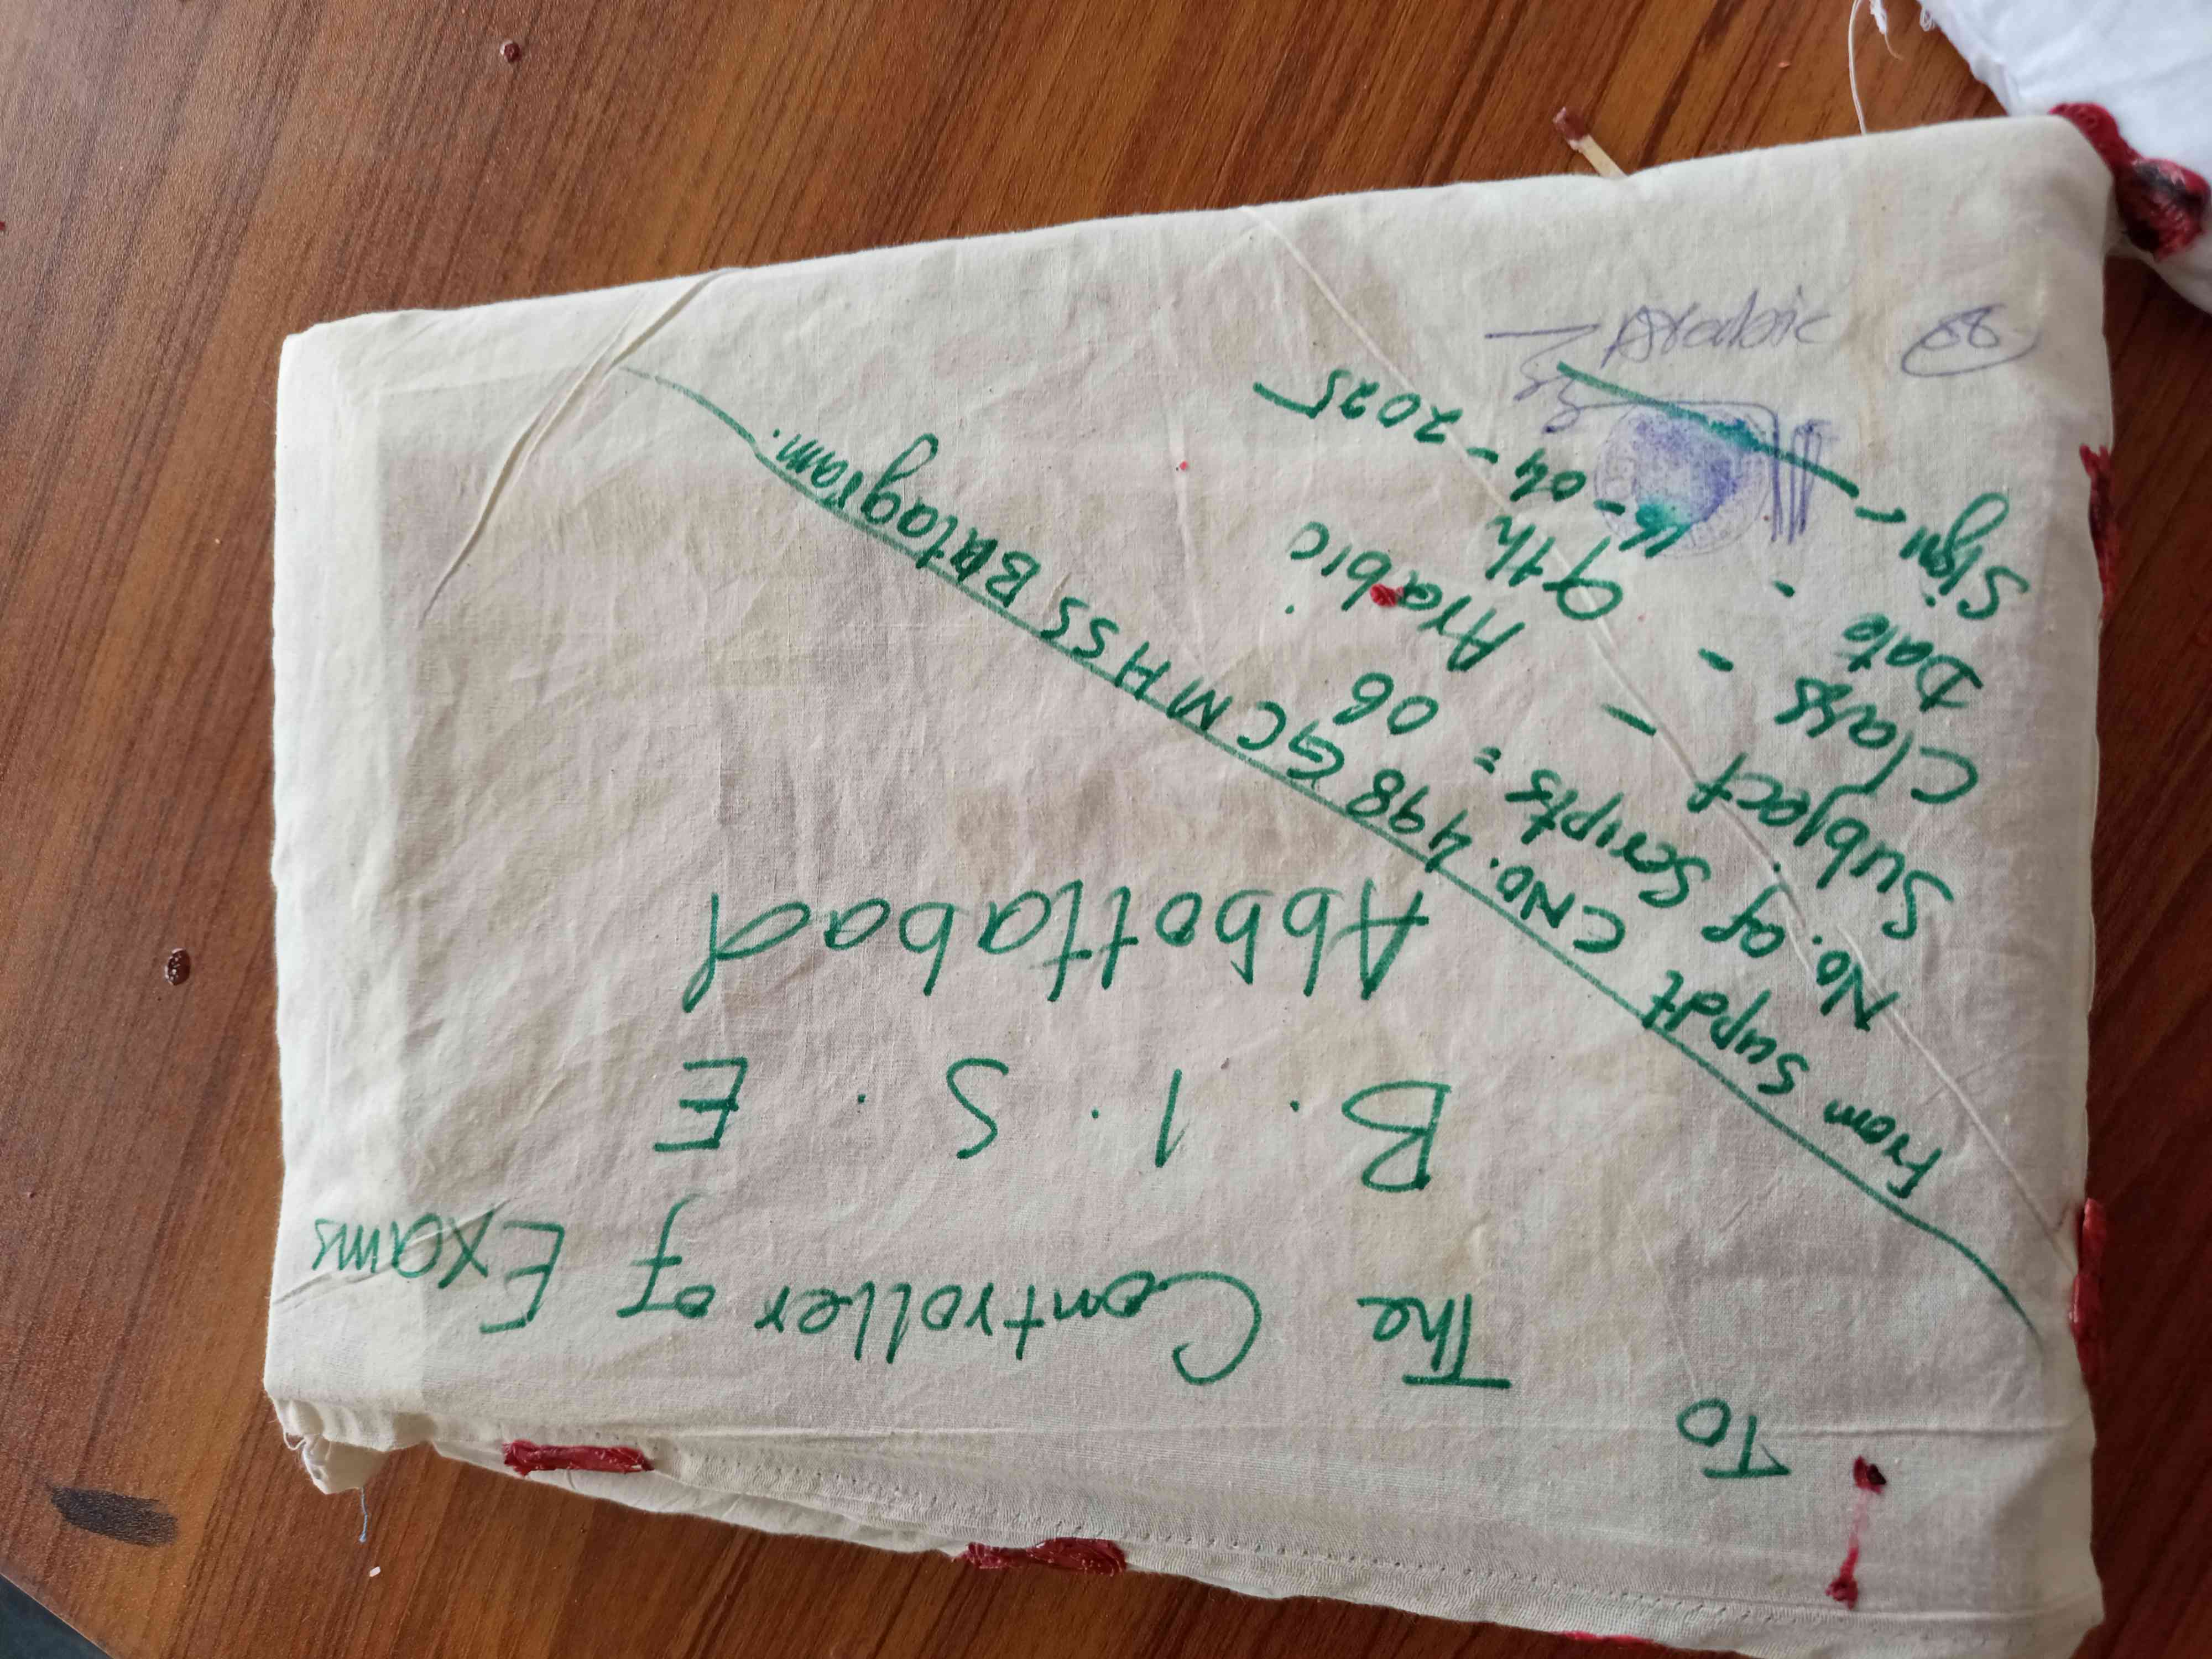 To
The Controller of Exams
B. I. S. E
Abbottabad
From Supdt CNo. 498 GCMHSS Butagram.
No. of Scripts = 06
Subject - Arabic
Class - 9th
Date - 16-04-2025
Sign -
Arabic